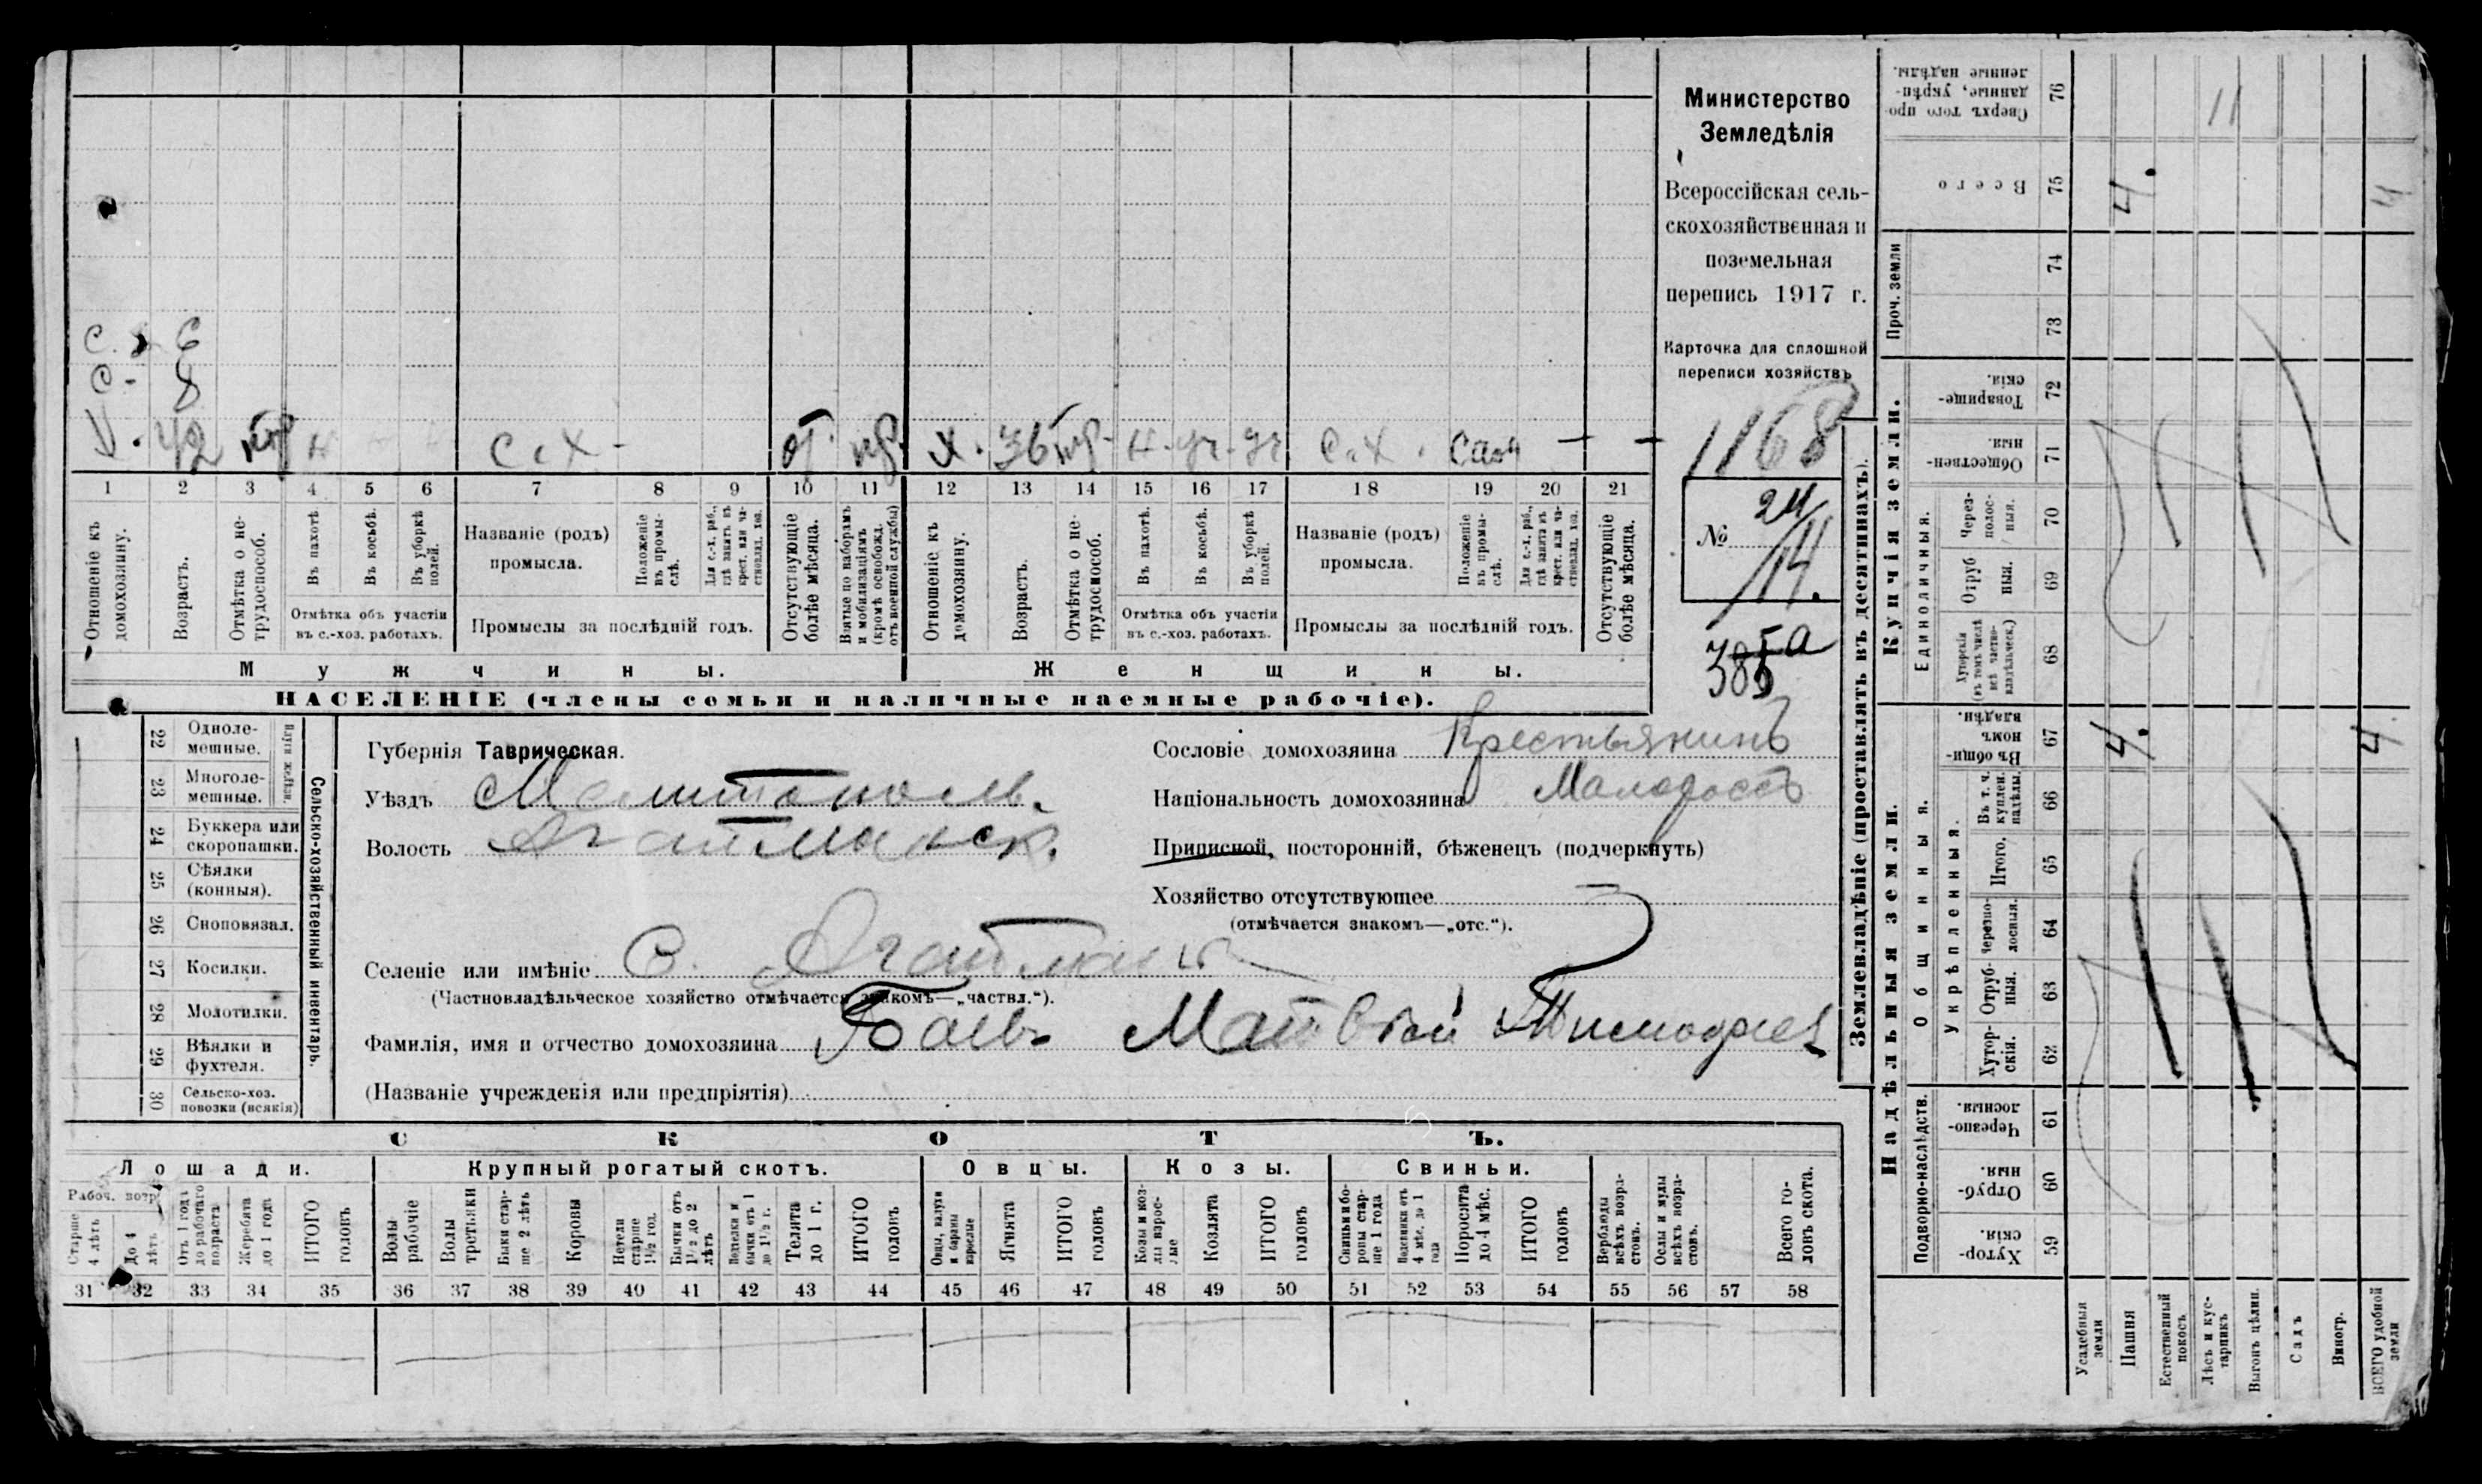 с. 6
с. 8
х. 42 тр н с.х. от. пр. х. 36 тр. н. уч. уч. с.х. сам — —
1 2 3 4 5 6 7 8 9 10 11 12 13 14 15 16 17 18 19 20 21
Отношеніе къ домохозяину.
Возрастъ.
Отмѣтка о не-трудоспособ.
Въ пахотѣ.
Въ косьбѣ.
Въ уборкѣ полей.
Отмѣтка объ участіи
въ с.-хоз. работахъ.
Названіе (родъ)
промысла.
Положеніе въ промы-слѣ.
Для с.-х. раб., гдѣ занятъ въ крест. или ча-стновлад. хоз.
Промыслы за послѣдній годъ.
Отсутствующіе болѣе мѣсяца.
Взятые по наборамъ и мобилизаціямъ (кромѣ освобожд. отъ военной службы)
Отношеніе къ домохозяину.
Возрастъ.
Отмѣтка о не-трудоспособ.
Въ пахотѣ.
Въ косьбѣ.
Въ уборкѣ полей.
Отмѣтка объ участіи
въ с.-хоз. работахъ.
Названіе (родъ)
промысла.
Положеніе въ промы-слѣ.
Для с.-х. раб., гдѣ занята въ крест. или ча-стновлад. хоз.
Промыслы за послѣдній годъ.
Отсутствующіе болѣе мѣсяца.
Мужчины.
Женщины.
НАСЕЛЕНІЕ (члены семьи и наличные наемные рабочіе).
Министерство
Земледѣлія
Всероссійская сель-
скохозяйственная и
поземельная
перепись 1917 г.
Карточка для сплошной
переписи хозяйствъ
1168
№ 24/14.
385а
22 Одноле-мешные.
23 Многоле-мешные.
24 Буккера или скоропашки.
25 Сѣялки (конныя).
26 Сноповязал.
27 Косилки.
28 Молотилки.
29 Вѣялки и фухтеля.
30 Сельско-хоз. повозки (всякія)
Сельско-хозяйственный инвентарь.
Губернія Таврическая.
Уѣздъ Мелитополь.
Волость Агайманск.
Селеніе или имѣніе С. Агайманъ
(Частновладѣльческое хозяйство отмѣчается знакомъ—„частвл.“).
Фамилія, имя и отчество домохозяина Баевъ Матвей Тимофеев
(Названіе учрежденія или предпріятія)
Сословіе домохозяина Крестьянинъ
Національность домохозяина Малоросс
Приписной, посторонній, бѣженецъ (подчеркнуть)
Хозяйство отсутствующее
(отмѣчается знакомъ—„отс.“).
СКОТЪ.
Лошади. Крупный рогатый скотъ. Овцы. Козы. Свиньи.
Рабоч. возр.
Старше 4 лѣтъ
До 4 лѣтъ
Отъ 1 года до рабочаго возраста
Жеребята до 1 года
ИТОГО головъ
Волы рабочіе
Волы третьяки
Быки стар-ше 2 лѣтъ
Коровы
Нетели старше 1½ год.
Бычки отъ 1½ до 2 лѣтъ
Телки и бычки отъ 1 до 1½ г.
Телята до 1 г.
ИТОГО головъ
Овцы, валухи и бараны взрослые
Ягнята
ИТОГО головъ
Козы и коз-лы взрос-лые
Козлята
ИТОГО головъ
Свиньи и бо-ровы стар-ше 1 года
Подсвинки отъ 4 мѣс. до 1 года
Поросята до 4 мѣс.
ИТОГО головъ
Верблюды всѣхъ возра-стовъ.
Ослы и мулы всѣхъ возра-стовъ.
Всего го-ловъ скота.
31 32 33 34 35 36 37 38 39 40 41 42 43 44 45 46 47 48 49 50 51 52 53 54 55 56 57 58
Землевладѣніе (проставлять въ десятинахъ).
Купчія земли.
Надѣльныя земли.
Проч. земли
Единоличныя.
Общинныя.
Укрѣпленныя.
Подворно-наслѣдств.
Сверхъ того про-данные, укрѣп-ленные надѣлы. 76
Всего 75 4. 4
74
73
Товарище-скія. 72
Обществен-ныя. 71
Через-полос-ныя. 70
Отруб-ныя. 69
Хуторскія (въ томъ числѣ всѣ частно-владѣльческ.) 68
Въ общин-номъ владѣн. 67 4. 4
Въ т. ч. куплен. надѣлы. 66
Итого. 65
Черезпо-лосныя. 64
Отруб-ныя. 63
Хутор-скія. 62
Черезпо-лосныя. 61
Отруб-ныя. 60
Хутор-скія. 59
Усадебныя земли
Пашня
Естественный покосъ
Лѣсъ и кус-тарникъ
Выгонъ цѣлин.
Садъ
Виногр.
ВСЕГО удобной земли